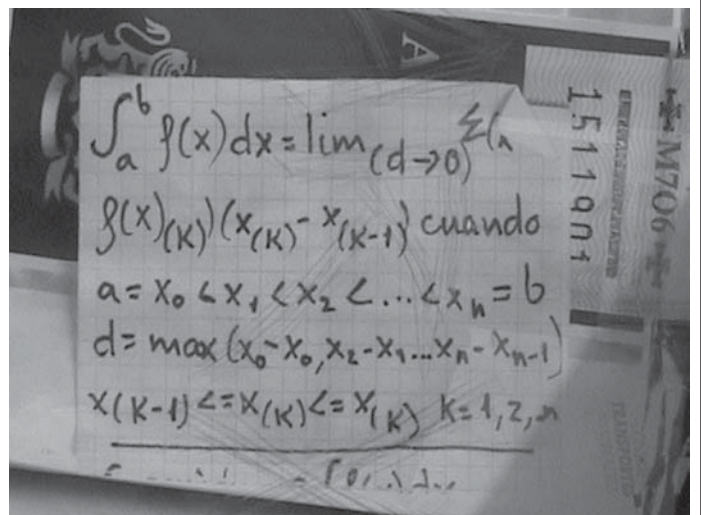 ∫ₐᵇ f(x)dx = lim (d→0) Σ(n
f(x)(K))(x(K) - x(K-1)) cuando
a = x₀ < x₁ < x₂ < ... < xₙ = b
d = max (x₀-x₀, x₂-x₁...xₙ-xₙ₋₁)
x(K-1) <= x(K) <= x(K) K=1,2,n
A
1511901
M706